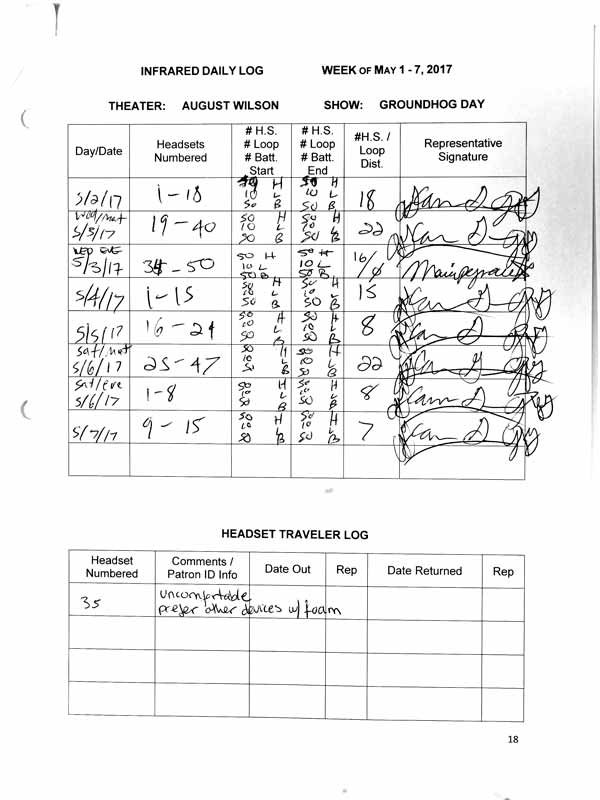 INFRARED DAILY LOG WEEK OF MAY 1 - 7, 2017
THEATER: AUGUST WILSON SHOW: GROUNDHOG DAY
Day/Date Headsets Numbered # H.S. # Loop # Batt. Start # H.S. # Loop # Batt. End #H.S. / Loop Dist. Representative Signature
5/2/17 1-18 50 H 10 L 50 B 50 H 10 L 50 B 18
Wed/mat 5/3/17 19-40 50 H 10 L 50 B 50 H 10 L 50 B 22
WED EVE 5/3/17 50 H 10 L 50 B 50 H 10 L 50 B
5/4/17 1-15 50 H 10 L 50 B 50 H 10 L 50 B 15
5/5/17 16-24 50 H 10 L 50 B 50 H 10 L 50 B 8
Sat/mat 5/6/17 25-47 50 H 10 L 50 B 50 H 10 L 50 B 22
Sat/eve 5/6/17 1-8 50 H 10 L 50 B 50 H 10 L 50 B 8
5/7/17 9-15 50 H 10 L 50 B 50 H 10 L 50 B 7
HEADSET TRAVELER LOG
Headset Numbered Comments / Patron ID Info Date Out Rep Date Returned Rep
35 uncomfortable
prefer other devices w/ foam
18